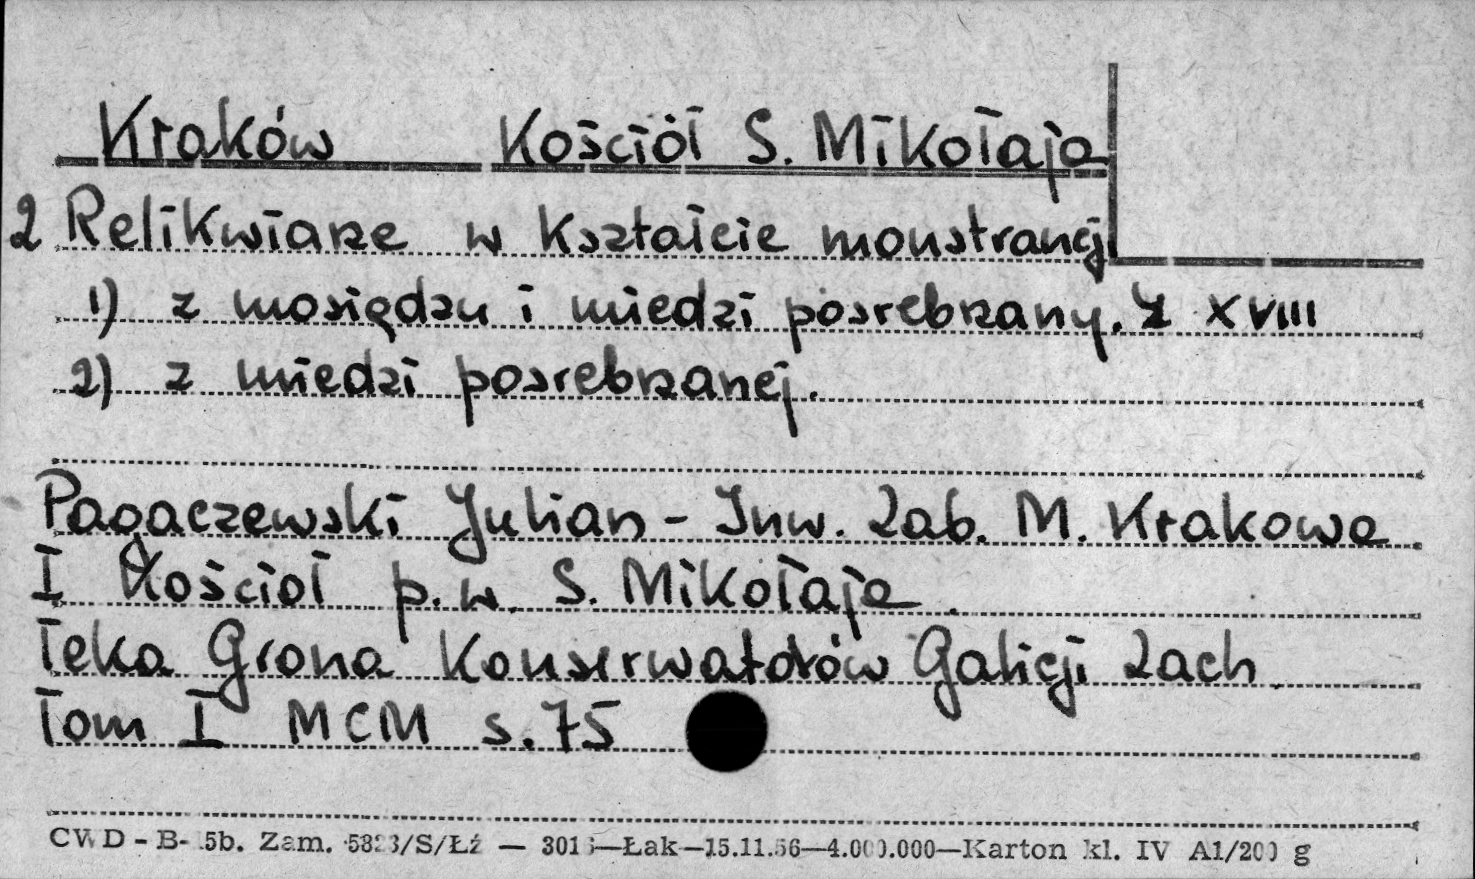 Kraków Kościół S. Mikołaja
2 Relikwiarze w kształcie monstrancji
1) z mosiądzu i miedzi posrebrzany. z XVIII
2) z miedzi posrebrzanej.
Pagaczewski Julian - Inw. Zab. M. Krakowa
I Kościoł p.w. S. Mikołaja.
Teka Grona Konserwatorów Galicji Zach.
Tom I MCM s. 75
CWD - B- 5b. Zam. /S/Łź — —Łak—15.11.56—4.000.000—Karton kl. IV A1/200 g